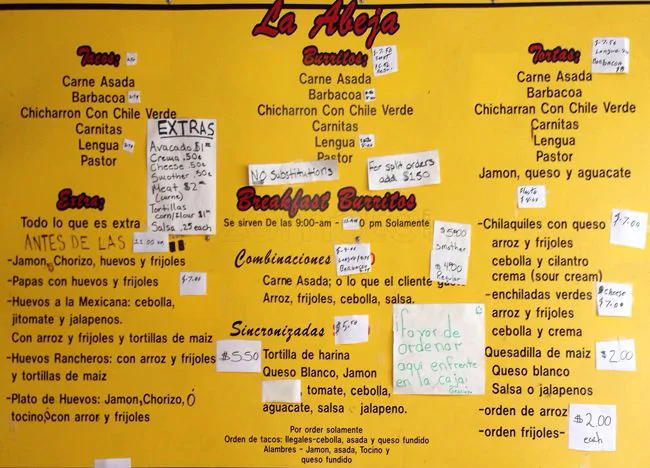 La Abeja
Tacos:
Carne Asada
Barbacoa
Chicharron Con Chile Verde
Carnitas
Lengua
Pastor
EXTRAS
Avocado $1
Crema .50¢
Cheese .50¢
Smother .50¢
Meat $2
(carne)
Tortillas
corn/flour $1
Salsa .25 each
Extra:
Todo lo que es extra
ANTES DE LAS 11:00
-Jamon, Chorizo, huevos y frijoles
-Papas con huevos y frijoles
$7.00
-Huevos a la Mexicana: cebolla,
jitomate y jalapenos.
Con arroz y frijoles y tortillas de maiz
-Huevos Rancheros: con arroz y frijoles
y tortillas de maiz
$5.50
-Plato de Huevos: Jamon,Chorizo, Ó
tocino,con arroz y frijoles
Burritos:
$7.50
Carne Asada
Barbacoa
Chicharron Con Chile Verde
Carnitas
Lengua
Pastor
NO Substitutions
For split orders
add $1.50
Breakfast Burritos
Se sirven De las 9:00-am - pm Solamente
Smother
Regular
Combinaciones
Carne Asada; o lo que el cliente
Arroz, frijoles, cebolla, salsa.
Sincronizadas
Tortilla de harina
Queso Blanco, Jamon
, tomate, cebolla,
aguacate, salsa jalapeno.
¡favor de
ordenar
aqui enfrente
en la caja!
Gracias
Por order solamente
Orden de tacos: Ilegales-cebolla, asada y queso fundido
Alambres - Jamon, asada, Tocino y
queso fundido
Tortas:
$7.50
Lengua
Barbacoa
$8
Carne Asada
Barbacoa
Chicharran Con Chile Verde
Carnitas
Lengua
Pastor
Jamon, queso y aguacate
-Chilaquiles con queso
$7.00
arroz y frijoles
cebolla y cilantro
crema (sour cream)
-enchiladas verdes
cheese
$7.00
arroz y frijoles
cebolla y crema
Quesadilla de maiz
$2.00
Queso blanco
Salsa o jalapenos
-orden de arroz
-orden frijoles-
$2.00
each